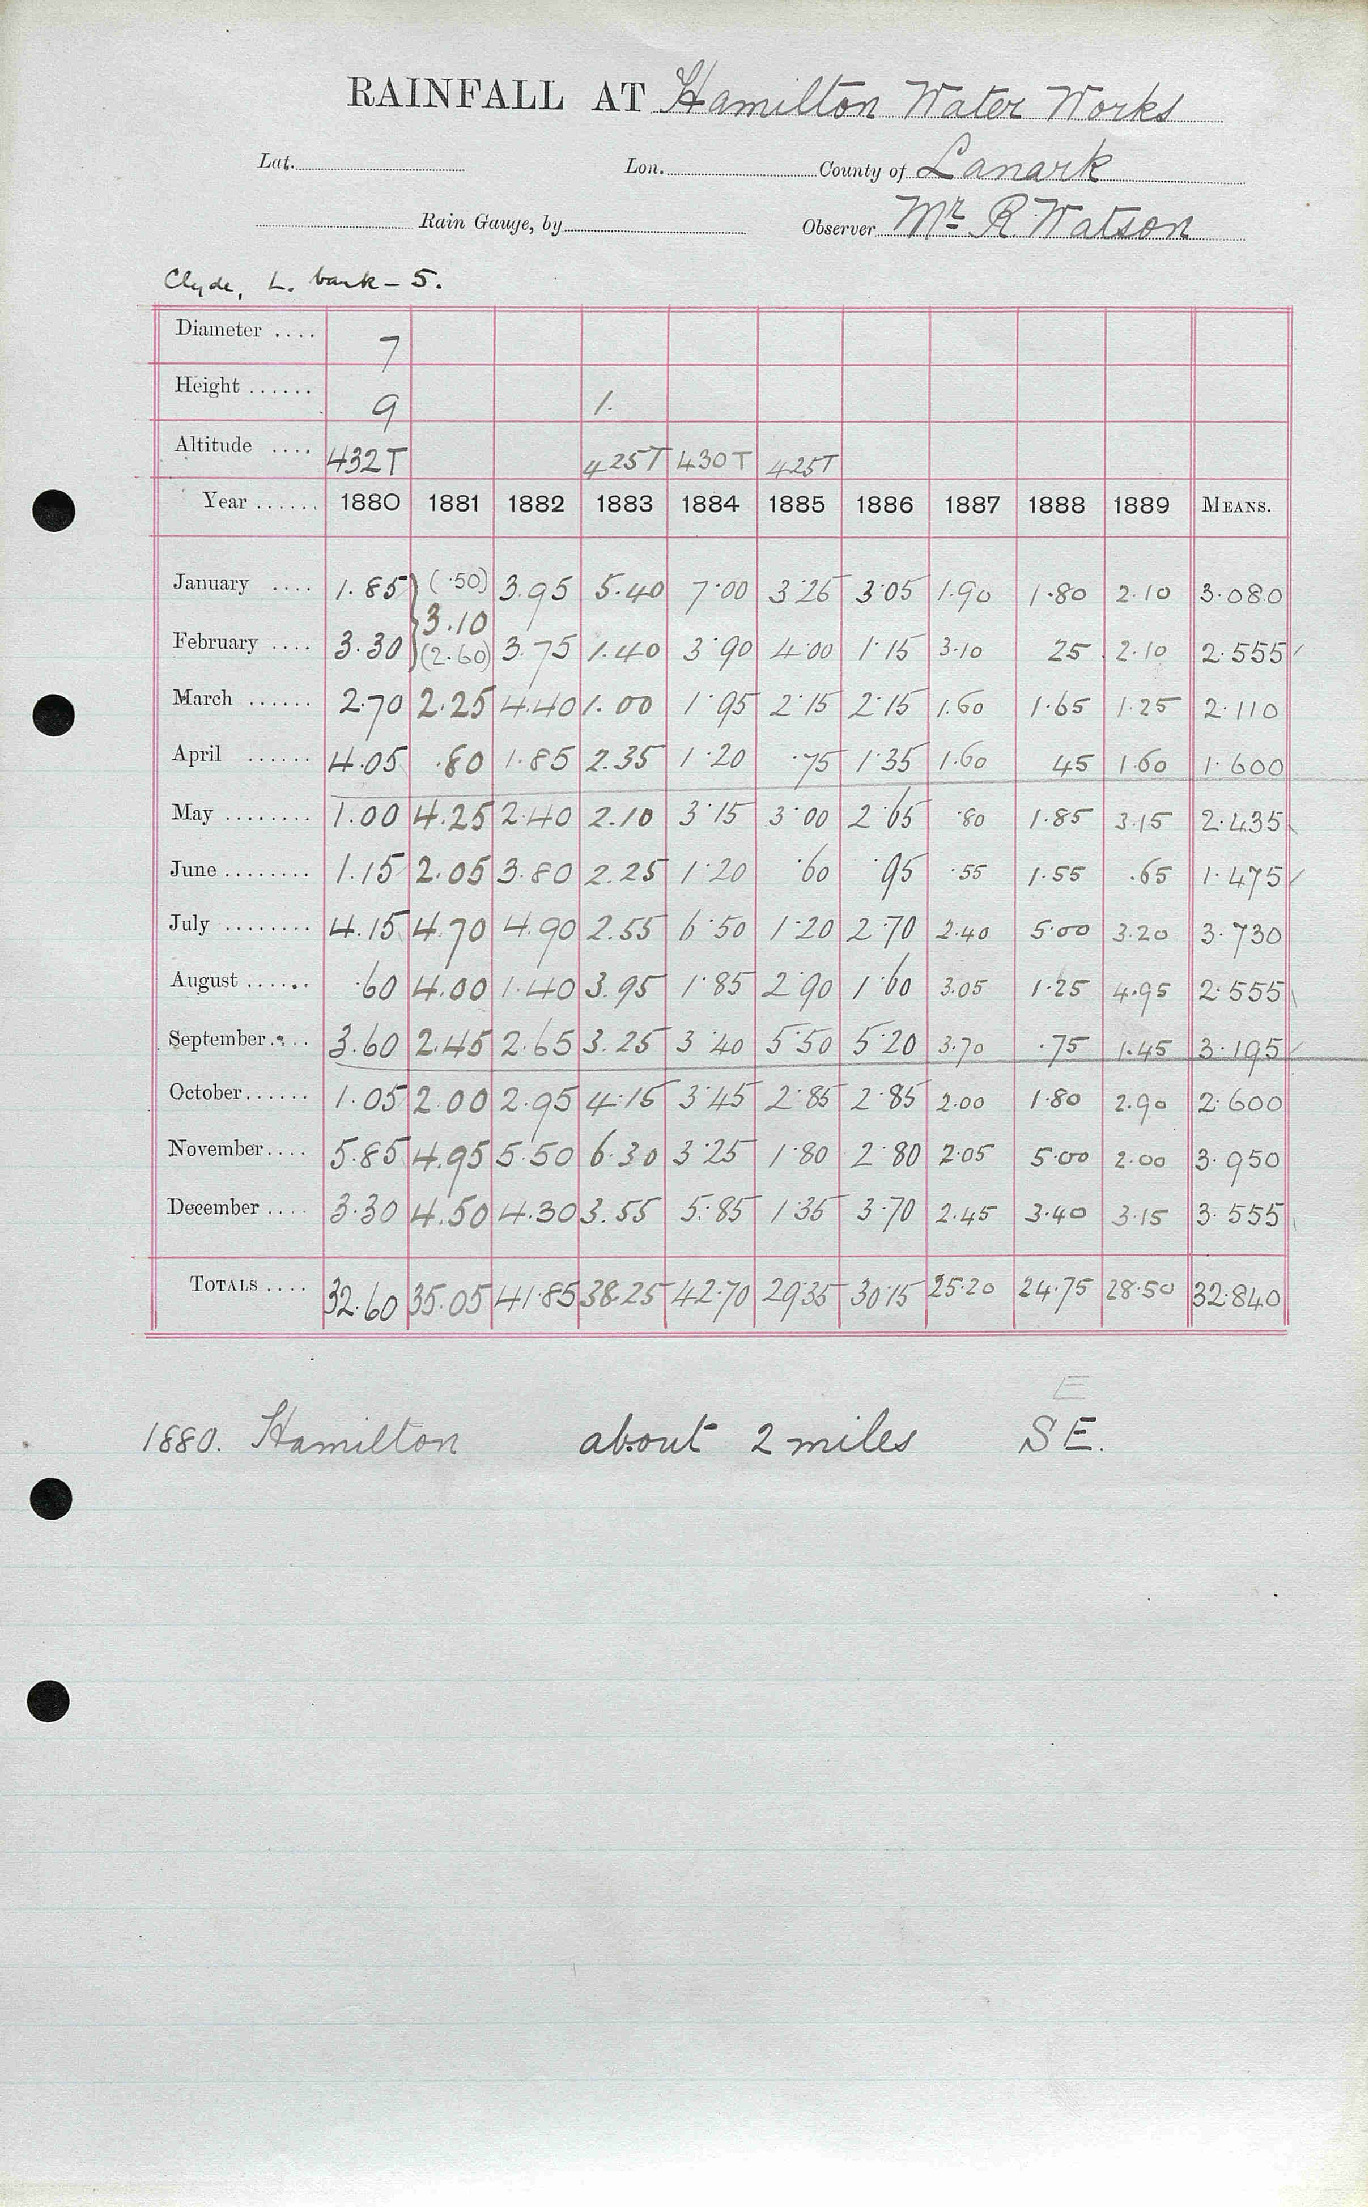 RAINFALL AT Hamilton Water Works
Lat. Lon. County of Lanark
Rain Gauge, by Observer Mr R Watson
Clyde, L. bank - 5.
Diameter .... 7
Height ...... 9 1.
Altitude .... 432T 425T 430T 425T
Year ...... 1880 1881 1882 1883 1884 1885 1886 1887 1888 1889 MEANS.
January .... 1.85 (.50) 3.95 5.40 7.00 3.25 3.05 1.90 1.80 2.10 3.080
3.10
February .... 3.30 (2.60) 3.75 1.40 3.90 4.00 1.15 3.10 25 2.10 2.555
March ...... 2.70 2.25 4.40 1.00 1.95 2.15 2.15 1.60 1.65 1.25 2.110
April ...... 4.05 .80 1.85 2.35 1.20 .75 1.35 1.60 45 1.60 1.600
May ........ 1.00 4.25 2.40 2.10 3.15 3.00 2.65 .80 1.85 3.15 2.435
June ........ 1.15 2.05 3.80 2.25 1.20 .60 .95 .55 1.55 .65 1.475
July ........ 4.15 4.70 4.90 2.55 6.50 1.20 2.70 2.40 5.00 3.20 3.730
August ...... .60 4.00 1.40 3.95 1.85 2.90 1.60 3.05 1.25 4.95 2.555
September .... 3.60 2.45 2.65 3.25 3.40 5.50 5.20 3.70 .75 1.45 3.195
October ...... 1.05 2.00 2.95 4.15 3.45 2.85 2.85 2.00 1.80 2.90 2.600
November .... 5.85 4.95 5.50 6.30 3.25 1.80 2.80 2.05 5.00 2.00 3.950
December .... 3.30 4.50 4.30 3.55 5.85 1.35 3.70 2.45 3.40 3.15 3.555
TOTALS .... 32.60 35.05 41.85 38.25 42.70 29.35 30.15 25.20 24.75 28.50 32.840
E
1880. Hamilton about 2 miles SE.